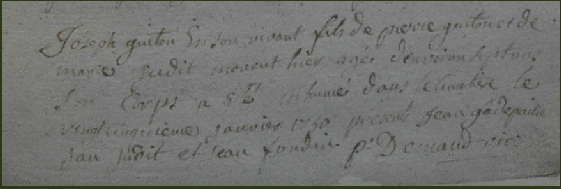 Joseph guiton En son vivant fils de pierre guiton et de
marie Judit mourut hier agé d'environ sept ans
Son Corps a Eté inhumé dans le cimetiere le
vingt cinquieme janvier 1750 present Jean
Jan Judit et Jean